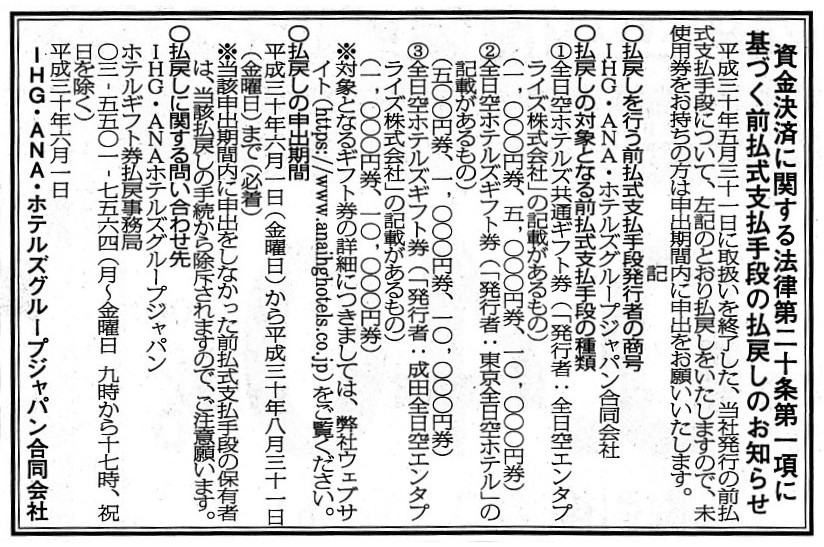 資金決済に関する法律第二十条第一項に
基づく前払式支払手段の払戻しのお知らせ
平成三十年五月三十一日に取扱いを終了した、当社発行の前払
式支払手段について、左記のとおり払戻しをいたしますので、未
使用券をお持ちの方は申出期間内に申出をお願いいたします。
記
〇払戻しを行う前払式支払手段発行者の商号
IHG・ANA・ホテルズグループジャパン合同会社
〇払戻しの対象となる前払式支払手段の種類
①全日空ホテルズ共通ギフト券(「発行者:全日空エンタプ
ライズ株式会社」の記載があるもの)
(一、〇〇〇円券、五、〇〇〇円券、一〇、〇〇〇円券)
②全日空ホテルズギフト券(「発行者:東京全日空ホテル」の
記載があるもの)
(五〇〇円券、一、〇〇〇円券、一〇、〇〇〇円券)
③全日空ホテルズギフト券(「発行者:成田全日空エンタプ
ライズ株式会社」の記載があるもの)
(一、〇〇〇円券、一〇、〇〇〇円券)
※対象となるギフト券の詳細につきましては、弊社ウェブサ
イト(https://www.anaihghotels.co.jp)をご覧ください。
〇払戻しの申出期間
平成三十年六月一日(金曜日)から平成三十年八月三十一日
(金曜日)まで(必着)
※当該申出期間内に申出をしなかった前払式支払手段の保有者
は、当該払戻しの手続から除斥されますので、ご注意願います。
〇払戻しに関する問い合わせ先
IHG・ANAホテルズグループジャパン
ホテルギフト券払戻事務局
〇三-五五〇一-七五六四(月〜金曜日 九時から十七時、祝
日を除く)
平成三十年六月一日
IHG・ANA・ホテルズグループジャパン合同会社